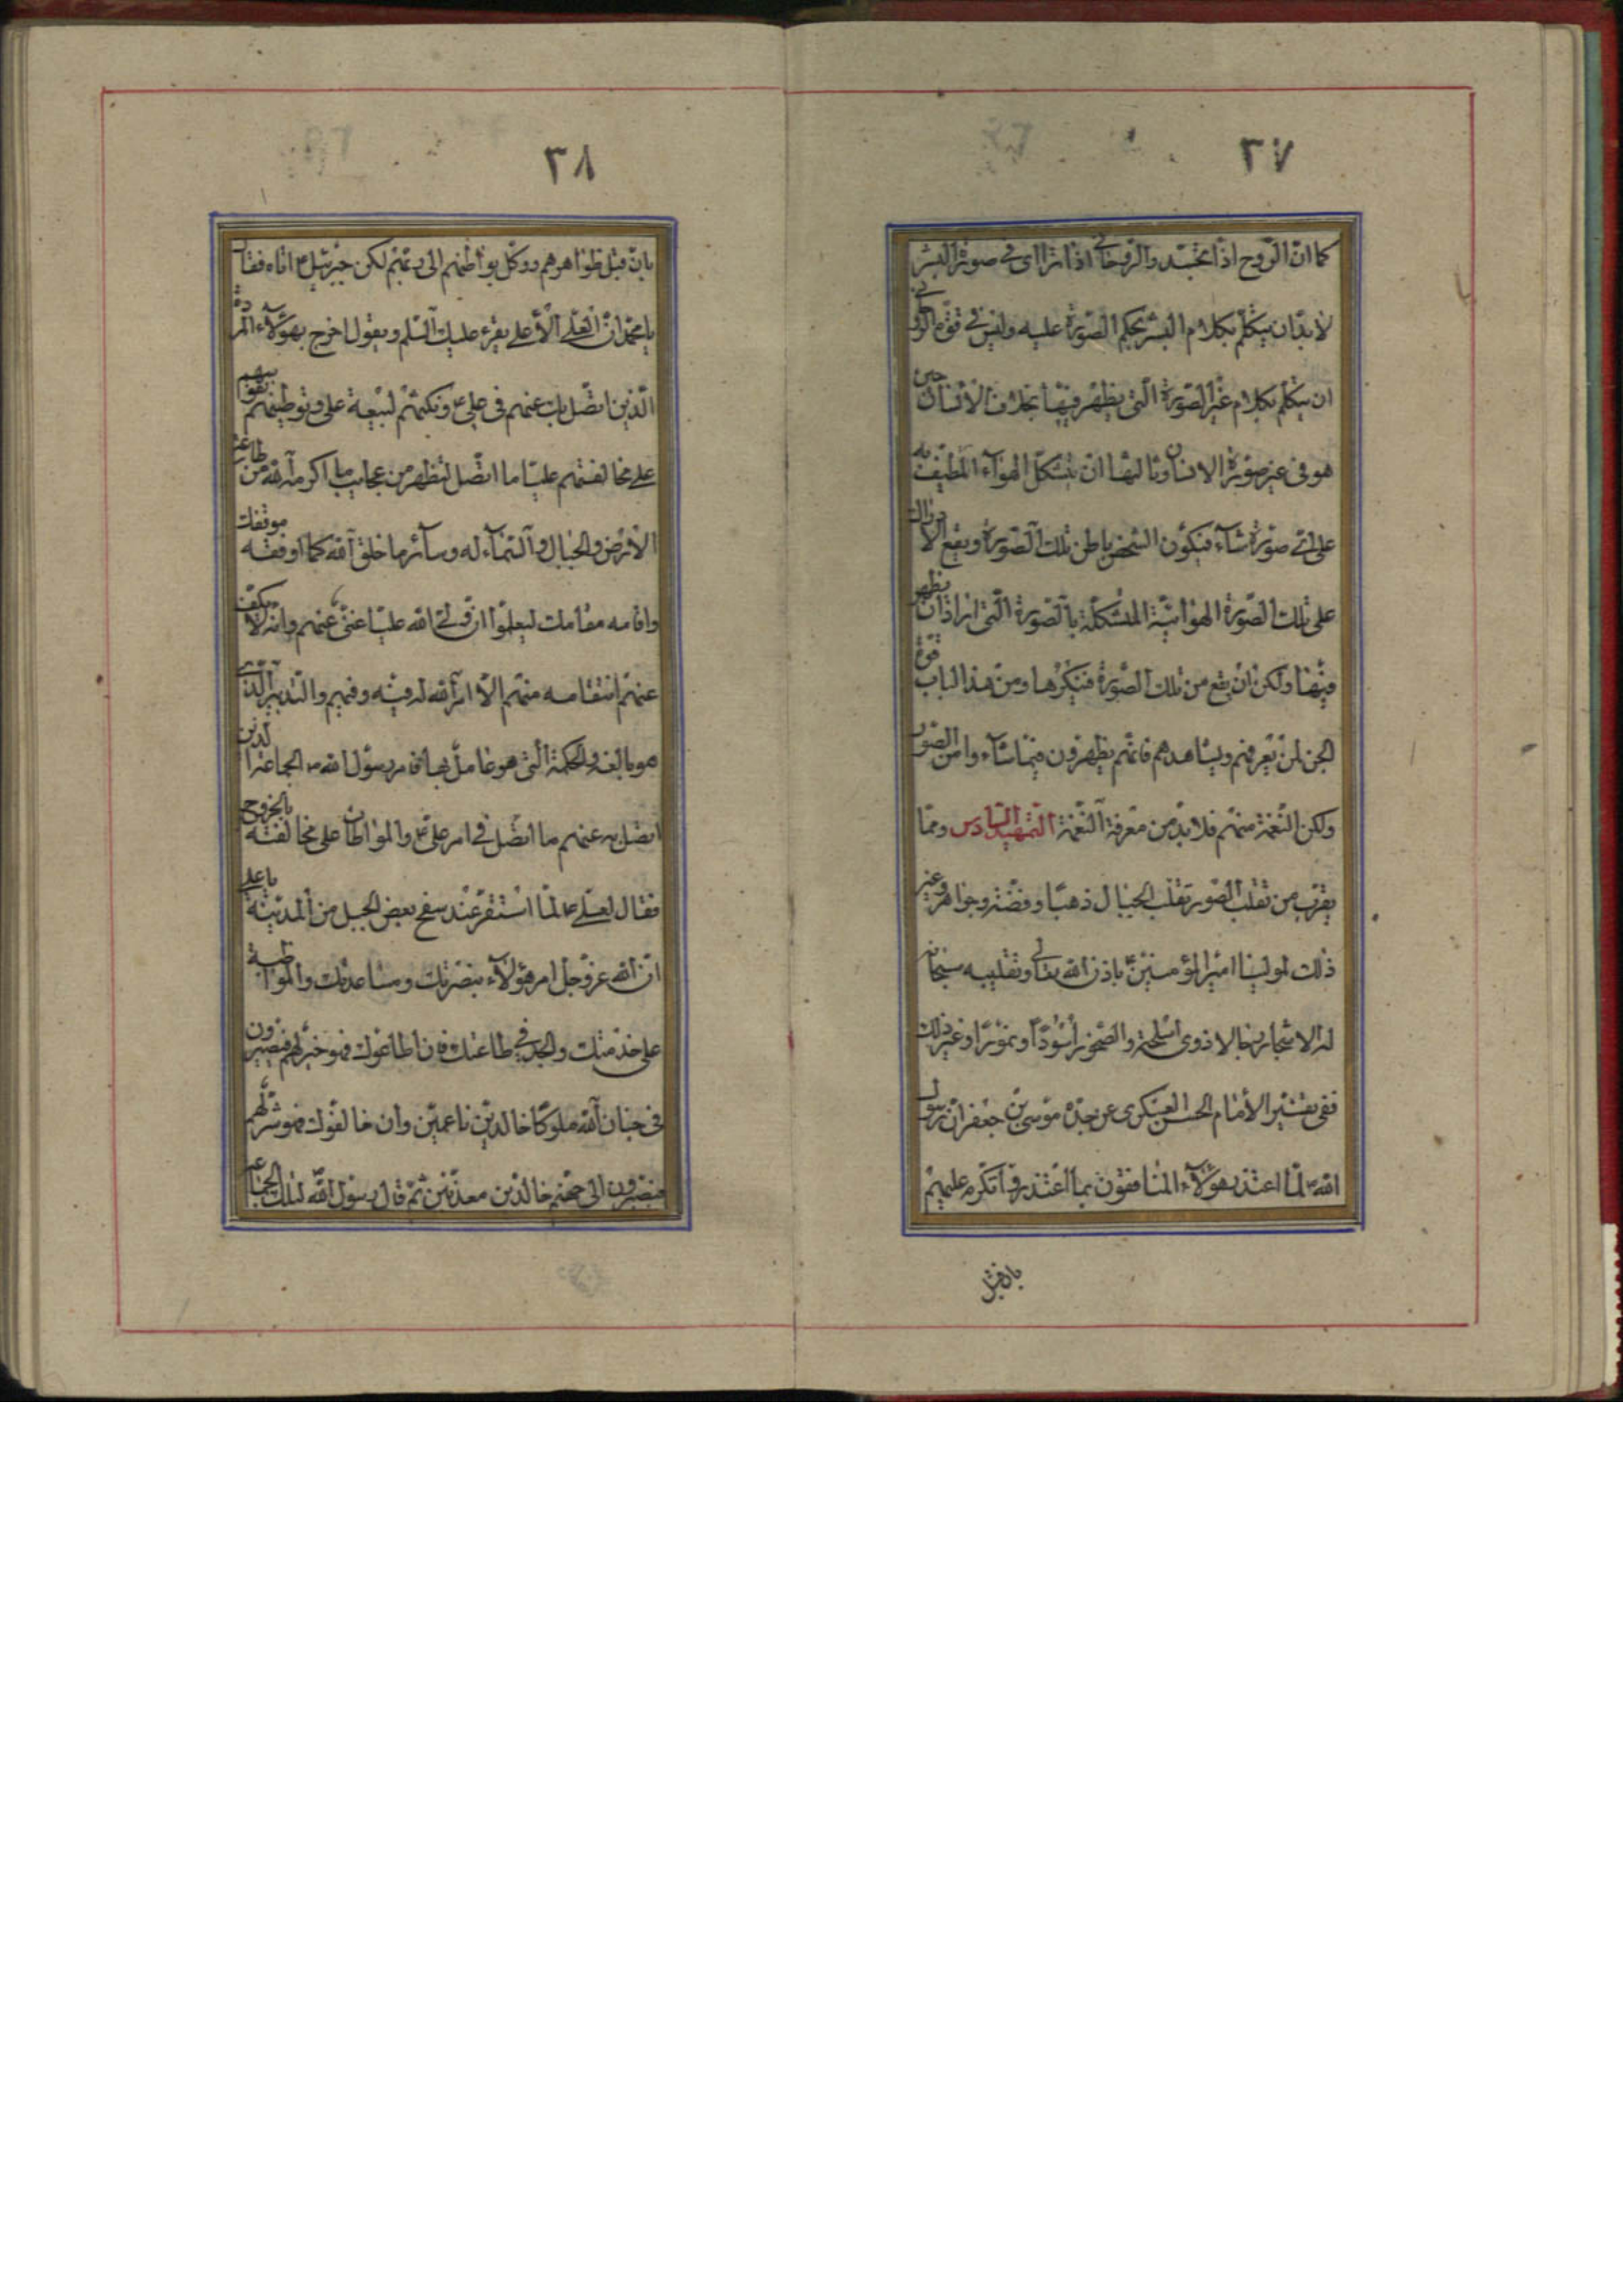 ٣٧
كما انّ الرّوح اذا تجسّد والرّوحاني اذا ترااى في صورة البشر
لابدّ ان يتكلّم بكلام البشر بحكم الصّورة عليه وليس في قوّة الرّوحاني
ان يتكلّم بكلام غير الصّورة الّتي يظهر فيها بخلاف الانسان حين
هو في غير صورة الانسان وثالثها ان يتشكّل الهوآء اللّطيف به
على اىّ صورة شآء فيكون الشّخص باطن تلك الصّورة ويقع الادراك
على تلك الصّورة الهوائيّة المتشكّلة بالصّورة الّتي اراد ان يظهر
فيها ولكن ان يقع من تلك الصّورة فينكرها ومن هذا الباب قوّة
الجن لمن يعرفهم ويشاهدهم فانّهم يظهرون فيما شاء وا من الصّور
ولكن النّغمة منهم فلابدّ من معرفة النّغمة التّمهيد السّادس وممّا
يقرب من تقلّب الصّور تقلّب الجبال ذهبًا وفضّة وجواهر وغير
ذلك لمولينا امير المؤمنين باذن الله تعالى وتقليبه سبحانه
له الاشجار رجالا ذوى اسلحة والصّخور أسودًا ونمورًا وغير ذلك
ففي تفسير الأمام الحسن العسكرى عن جدّه موسى بن جعفر انّ رسول
الله ص لمّا اعتذر هؤلآء المنافقون بما اعتذروا تكرّم عليهم
بان قبل
٣٨
بان قبل ظواهرهم ووكّل بواطنهم الى ربّهم لكن جبرئيل ع اتاه فقال
يا محمّد انّ العلّى الأعلى يقرء عليك السّلم ويقول اخرج بهؤلآء المردة
الّذين اتّصل بك عنهم في علي ع ونكثهم لبيعة على وتوطينهم نفوسهم
على مخالفتهم عليّا ما اتّصل لتظهر من عجايب ما اكرمه الله من طاعة
الأرض والجبال والسّمآء له وسآئر ما خلق الله كما اوقفه موقفك
واقامه مقامك ليعلموا انّ ولى الله عليّا غنىّ عنهم وانّه لا يكفّ
عنهم انتقامه منهم الاّ امر الله له فيه وفيهم والتّدبير الّذى
هو بالغه والحكمة الّتي هو عامل بها فامر رسول الله ص الجماعة الّذين
اتّصل به عنهم ما اتّصل في امر علي ع والمواطاة على مخالفته بالخروج
فقال لعلّى ع لمّا استقرّ عند سفح بعض الجبل من المدينة يا على
انّ الله عزّ وجلّ امر هؤلآء بنصرتك ومساعدتك والمواظبة
على خدمتك والجدّ في طاعتك فان اطاعوك فهو خير لهم فيصيرون
في جنان الله ملوكًا خالدين ناعمين وان خالفوك فهو شرّ لهم
فيصيرون الى جهنّم خالدين معذّبين ثمّ قال رسول الله لتلك الجماعة